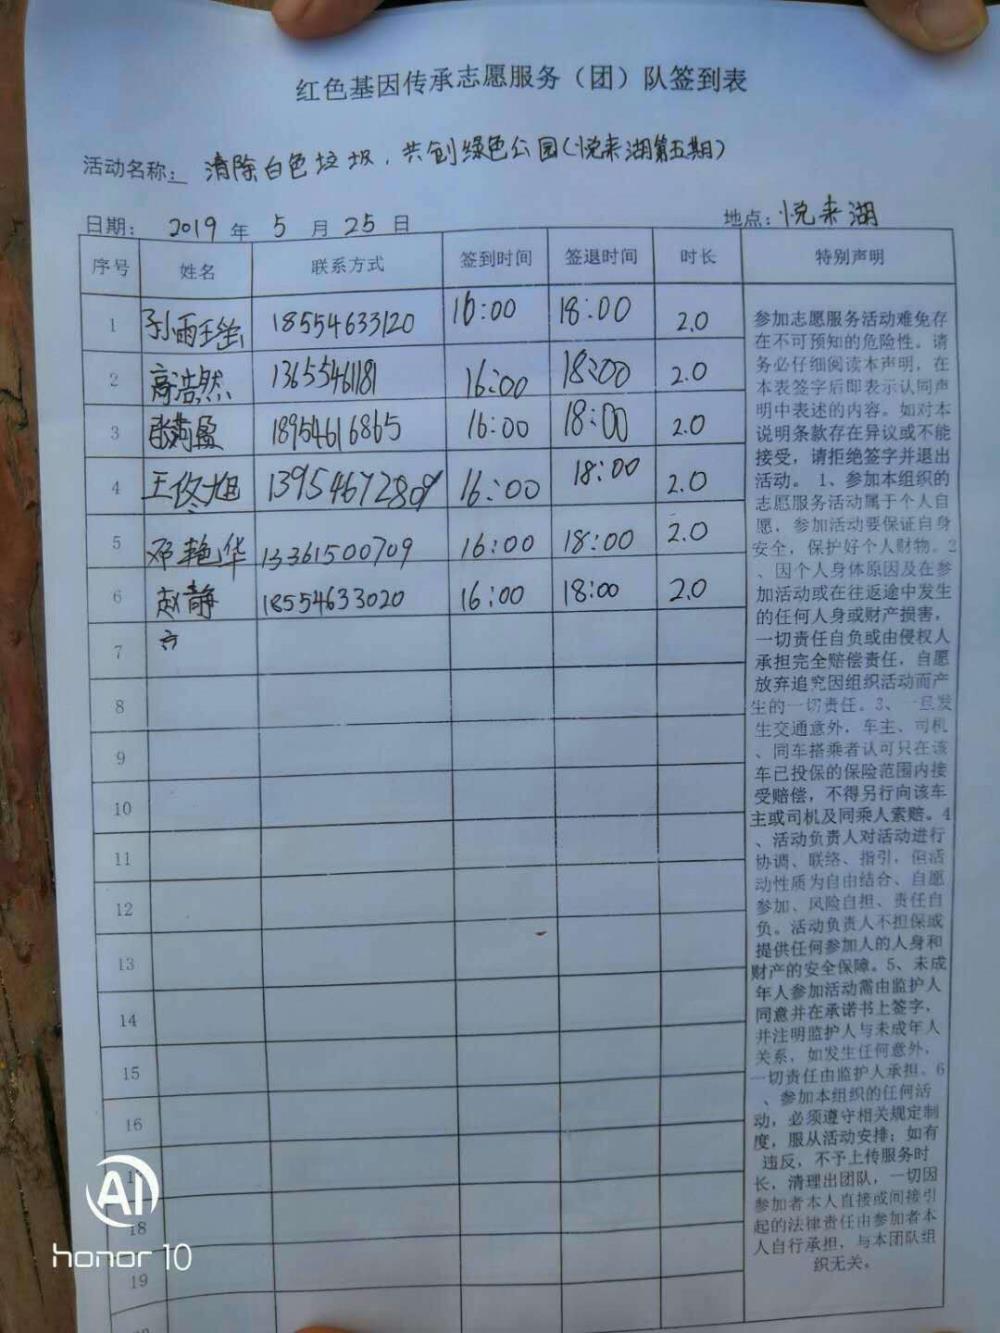 红色基因传承志愿服务（团）队签到表
活动名称： 清除白色垃圾，共创绿色公园（悦来湖第五期）
日期： 2019 年 5 月 25 日 地点：悦来湖
序号 姓名 联系方式 签到时间 签退时间 时长 特别声明
1 18554633120 16:00 18:00 2.0
2 高浩然 13655461181 16:00 18:00 2.0
3 18954616865 16:00 18:00 2.0
4 16:00 18:00 2.0
5 邓艳华 13361500709 16:00 18:00 2.0
6 赵静 18554633020 16:00 18:00 2.0
7
8
9
10
11
12
13
14
15
16
18
19
参加志愿服务活动难免存
在不可预知的危险性。请
务必仔细阅读本声明，在
本表签字后即表示认同声
明中表述的内容。如对本
说明条款存在异议或不能
接受，请拒绝签字并退出
活动。 1、参加本组织的
志愿服务活动属于个人自
愿，参加活动要保证自身
安全，保护好个人财物。2
、因个人身体原因及在参
加活动或在往返途中发生
的任何人身或财产损害，
一切责任自负或由侵权人
承担完全赔偿责任，自愿
放弃追究因组织活动而产
生的一切责任。3、一旦发
生交通意外，车主、司机
、同车搭乘者认可只在该
车已投保的保险范围内接
受赔偿，不得另行向该车
主或司机及同乘人索赔。4
、活动负责人对活动进行
协调、联络、指引，但活
动性质为自由结合、自愿
参加、风险自担、责任自
负。活动负责人不担保或
提供任何参加人的人身和
财产的安全保障。5、未成
年人参加活动需由监护人
同意并在承诺书上签字，
并注明监护人与未成年人
关系，如发生任何意外，
一切责任由监护人承担。6
、参加本组织的任何活
动，必须遵守相关规定制
度，服从活动安排；如有
违反，不予上传服务时
长，清理出团队，一切因
参加者本人直接或间接引
起的法律责任由参加者本
人自行承担，与本团队组
织无关。
AI
honor 10